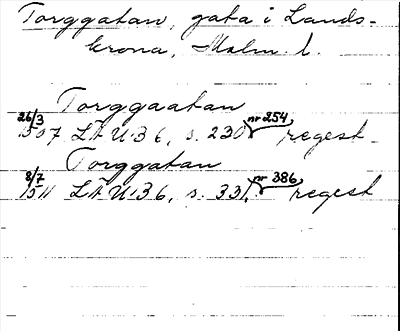 Torggatan, gata i Lands-
krona, Malm. l.
Torggaatan
26/3 1507 LÄU:3 6, s. 230, nr 254, regest
Torggatan
8/7 1511 LÄU:3 6, s. 331, nr 386, regest